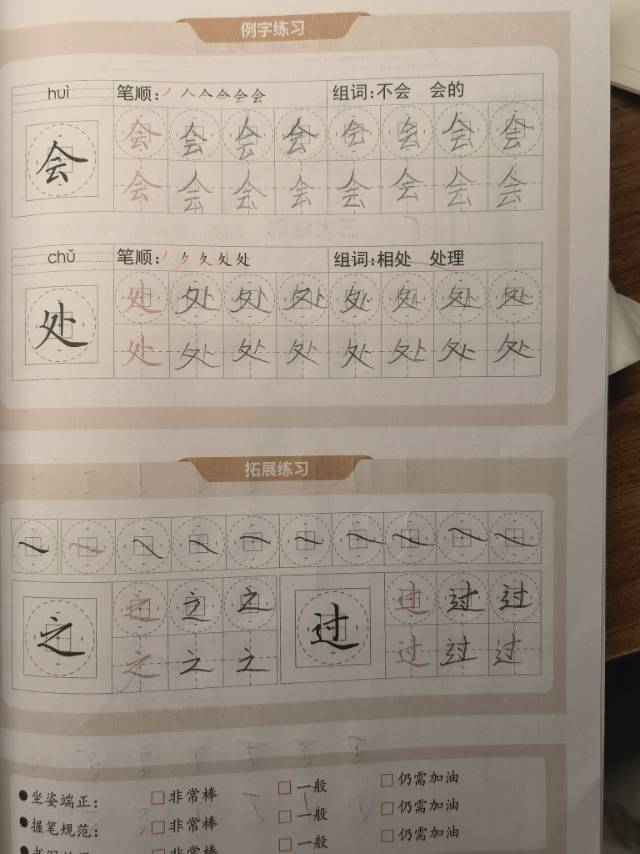 例字练习
huì 笔顺: 丿 人 亼 亼 会 会 组词:不会 会的
会 会 会 会 会 会 会 会 会
会 会 会 会 会 会 会 会
chǔ 笔顺: 丿 ク 夂 处 处 组词:相处 处理
处 处 处 处 处 处 处 处 处
处 处 处 处 处 处 处 处
拓展练习
之 之 之 之 过 过 过 过
之 之 之 过 过 过
坐姿端正: □非常棒 □一般 □仍需加油
握笔规范: □非常棒 □一般 □仍需加油
□非常棒 □一般 □仍需加油